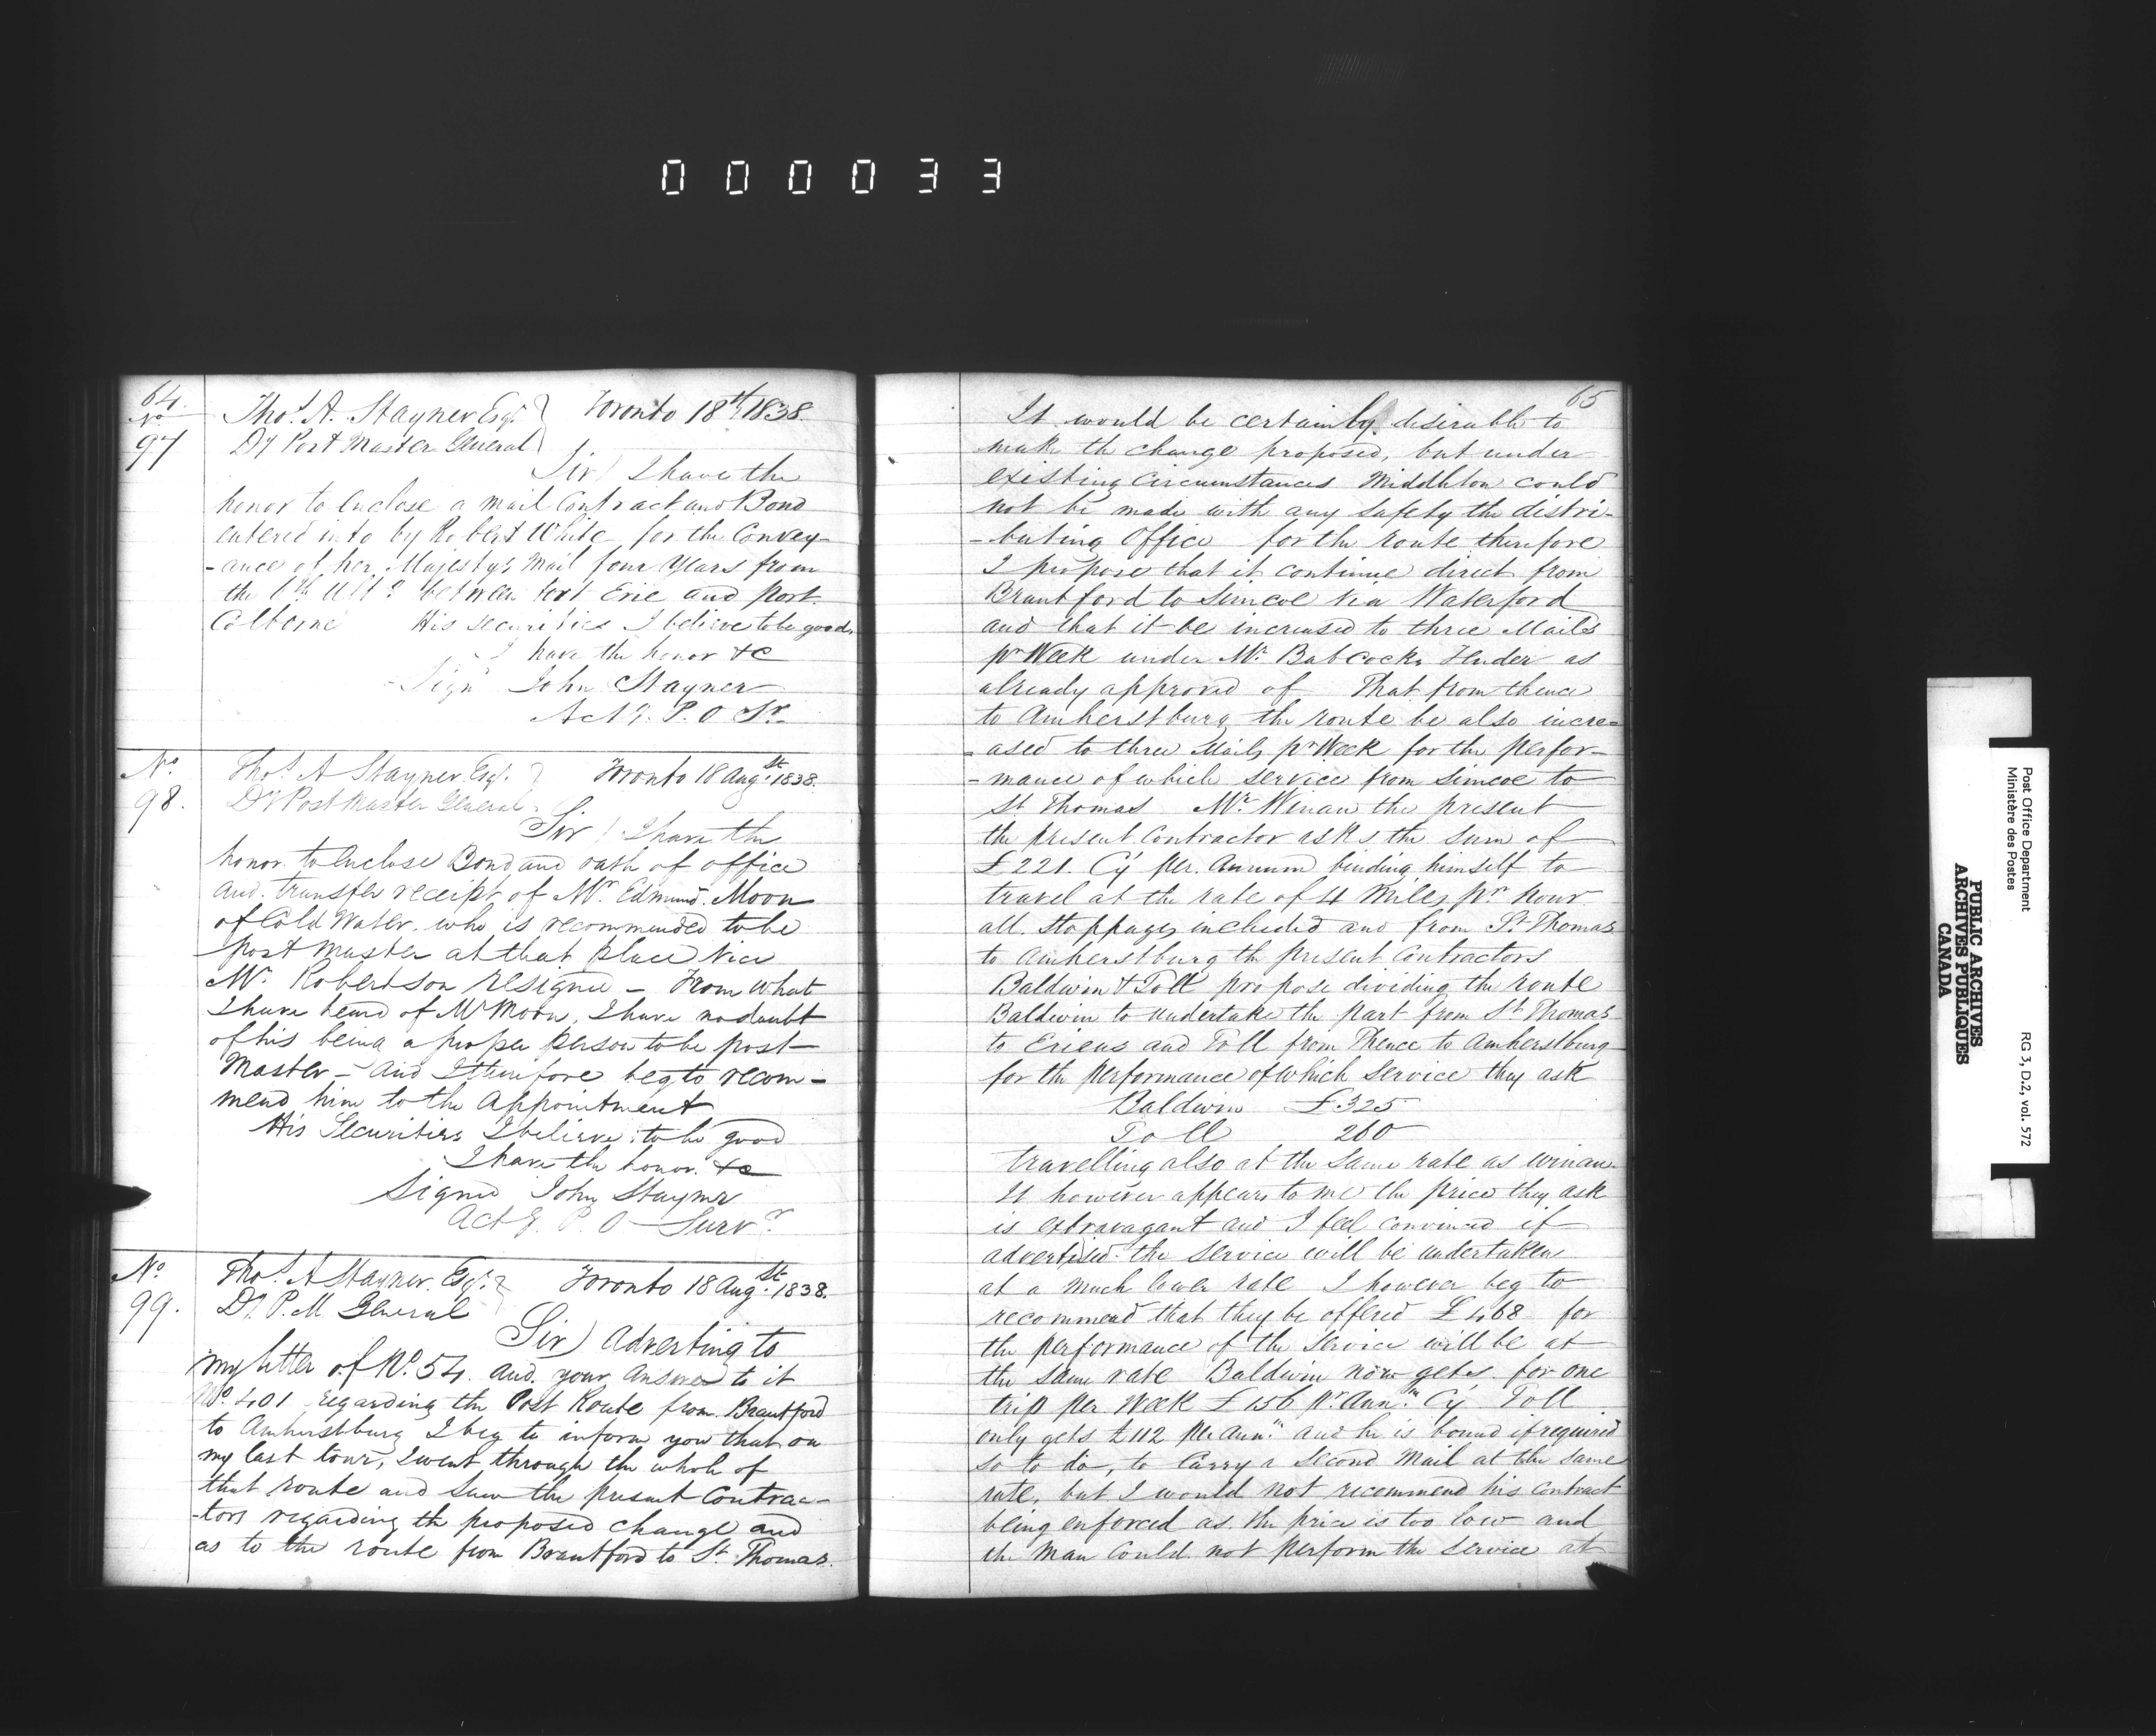 000033
64.
No
97
Thos. A. Stayner Esqr. Toronto 18th 1838.
Dy Post Master General
Sir) I have the
honor to enclose a mail Contract and Bond
entered into by Robert White for the Convey-
-ance of her Majesty's Mail four Years from
the 6th Ulto between Fort Erie and Port
Colborne His securities I believe to be good.
I have the honor &c
Signd John Stayner
Actg. P. O Sr.
No.
98.
Thos. A Stayner Esqr. Toronto 18 Augst. 1838.
Dy Post Master General.
Sir) I have the
honor to enclose Bond and oath of office
and transfer receipt of Mr. Edmund Moon
of Cold Water who is recommended to be
post Master at that place vice
Mr. Robertson resigned - From what
I have heard of Mr Moon, I have no doubt
of his being a proper person to be post-
Master - and I therefore beg to recom-
mend him to the appointment
His Securities I believe to be good
I have the honor &c
Signed John Stayner
Actg P. O Survr.
No.
99.
Thos. A Stayner. Esqr. Toronto 18 Augst. 1838.
Dy. P. M. General
Sir) Adverting to
my letter of No. 54. and your answer to it
No. 401 regarding the Post Route from Brantford
to Amherstburg I beg to inform you that on
my last tour, I went through the whole of
that route and saw the present Contrac-
-tors regarding the proposed change and
as to the route from Brantford to St. Thomas.
65
It would be certainly desirable to
make the change proposed, but under
existing circumstances Middleton could
not be made with any safety the distri-
-buting Office for the route therefore
I propose that it continue direct from
Brantford to Simcoe via Waterford
and that it be increased to three Mails
pr Week under Mr. Babcocks Tender as
already approved of That from thence
to Amherstburg the route be also incre-
-ased to three Mails pr Week for the perfor-
-mance of which service from Simcoe to
St. Thomas Mr. Winan the present
the present Contractor asks the sum of
£221. Cy per. Annum binding himself to
travel at the rate of 4 Miles pr hour
all. Stoppages included and from St Thomas
to Amherstburg th present Contractors
Baldwin & Toll propose dividing the route
Baldwin to undertake the part from St Thomas
to Erieus and Toll from Thence to Amherstburg
for the performance of which service they ask
Baldwin £.325
Toll 260
travelling also at the same rate as Winan.
It however appears to me the price they ask
is extravagant and I feel convinced if
advertised the service will be undertaken
at a much lower rate I however beg to
recommend that they be offered £468 for
the performance of the service will be at
the same rate Baldwin now gets for one
trip per Week £156 pr. Annm. Cy Toll
only gets £112 per Annm. and he is bound if required
so to do, to Carry a second Mail at the same
rate, but I would not recommend his Contract
being enforced as the price is too low and
the man could not perform the service at
PUBLIC ARCHIVES
ARCHIVES PUBLIQUES
CANADA
Post Office Department
Ministère des Postes
RG 3, D.2, vol. 572